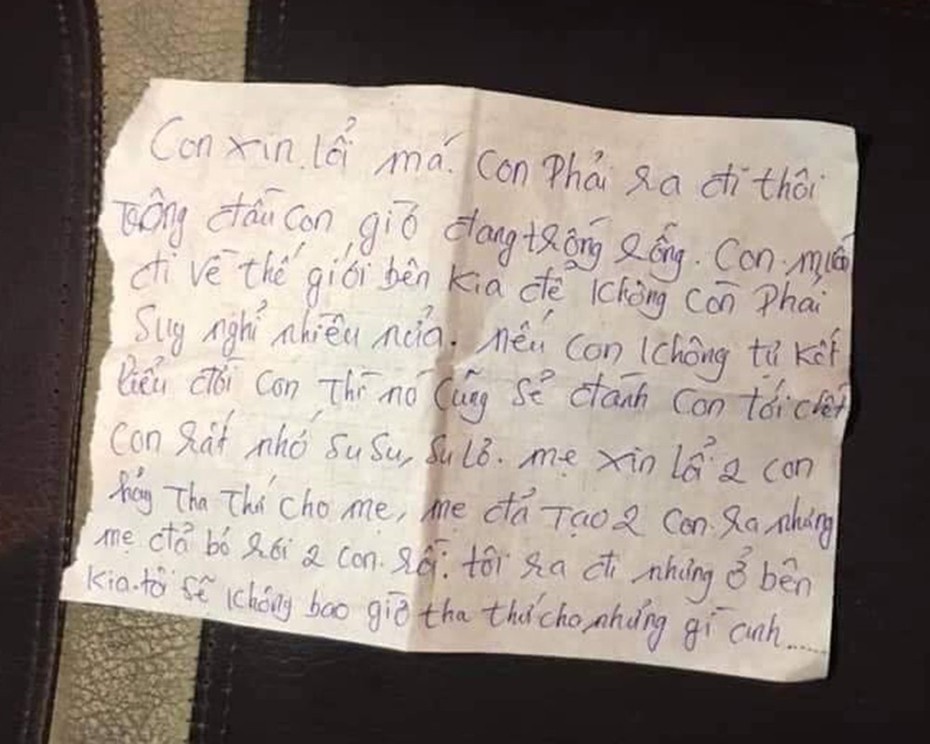 Con xin lổi má. Con Phải ra đi thôi
Trông đầu con giờ đang trống rỗng. Con muốn
đi về thế giới bên kia để không còn Phải
Suy nghỉ nhiều nửa. nếu con không tự kết
liểu đời con Thì nó Cũng sẻ đánh con tới chết
con rất nhớ SuSu, Su Lô. mẹ xin lổi 2 con
hảy Tha Thứ cho mẹ, mẹ đả Tạo 2 con ra nhưng
mẹ đả bỏ rơi 2 con rồi. tôi ra đi nhưng ở bên
kia. tôi sẽ không bao giờ tha thứ cho những gì anh......